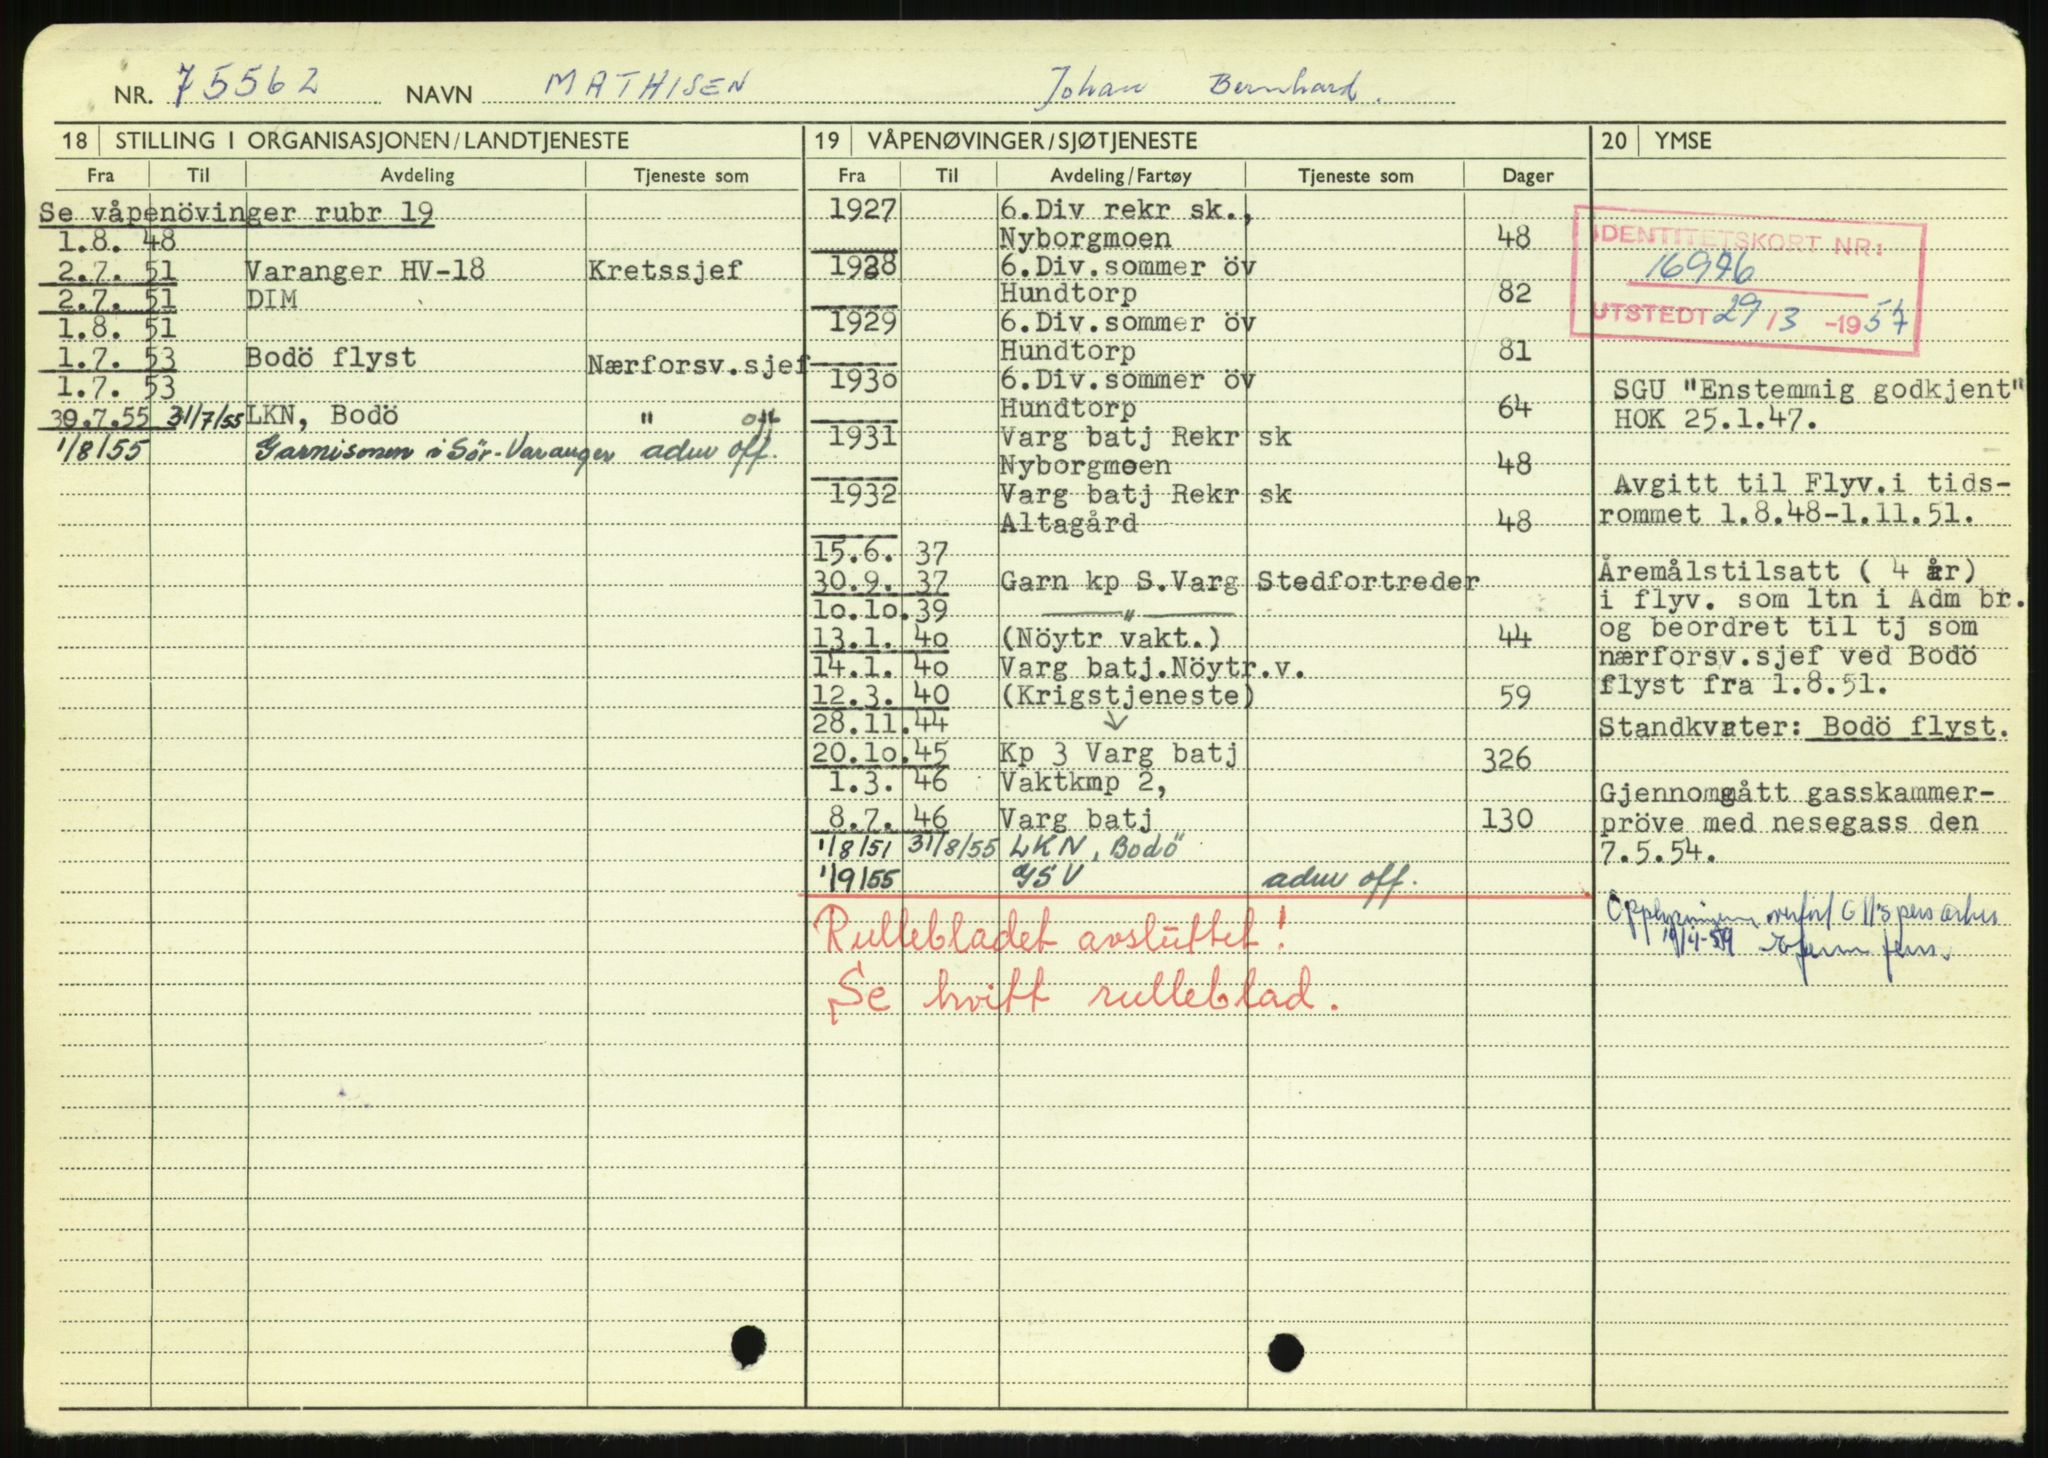 NR. 75562 NAVN MATHISEN Johan Bernhard.
18 STILLING I ORGANISASJONEN/LANDTJENESTE
Fra Til Avdeling Tjeneste som
Se våpenövinger rubr 19
1.8. 48
2.7. 51 Varanger HV-18 Kretssjef
2.7. 51 DIM
1.8. 51
1.7. 53 Bodö flyst Nærforsv.sjef
1.7. 53
30.7.55 31/7/55 LKN, Bodö " off
1/8/55 Garnisonen i Sör-Varanger adm off.
19 VÅPENØVINGER/SJØTJENESTE
Fra Til Avdeling/Fartøy Tjeneste som Dager
1927 6.Div rekr sk.,
Nyborgmoen 48
1928 6.Div.sommer öv
Hundtorp 82
1929 6.Div.sommer öv
Hundtorp 81
1930 6.Div.sommer öv
Hundtorp 64
1931 Varg batj Rekr sk
Nyborgmoen 48
1932 Varg batj Rekr sk
Altagård 48
15.6. 37
30.9. 37 Garn kp S.Varg Stedfortreder
10.10.39 "
13.1. 40 (Nöytr vakt.) 44
14.1. 40 Varg batj.Nöytr.v.
12.3. 40 (Krigstjeneste) 59
28.11.44
20.10.45 Kp 3 Varg batj 326
1.3. 46 Vaktkmp 2,
8.7. 46 Varg batj 130
1/8/51 31/8/55 LKN, Bodö
1/9/55 GSV adm off.
Rullebladet avsluttet!
Se hvitt rulleblad.
20 YMSE
IDENTITETSKORT NR:
16976
UTSTEDT 29/3 -1957
SGU "Enstemmig godkjent"
HOK 25.1.47.
Avgitt til Flyv.i tids-
rommet 1.8.48-1.11.51.
Åremålstilsatt ( 4 år)
i flyv. som ltn i Adm br.
og beordret til tj som
nærforsv.sjef ved Bodö
flyst fra 1.8.51.
Standkvarter: Bodö flyst.
Gjennomgått gasskammer-
pröve med nesegass den
7.5.54.
Opplysningene overført pers